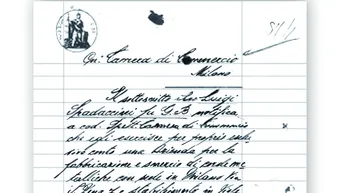 On. Camera di Commercio
Milano
Il sottoscritto Luigi
Spadaccini fu G. B. notifica
a cod. Spett. Camera di Commercio
che egli per proprio
conto una Azienda per la
fabbricazione e smercio di corde me
talliche con sede in Milano Via
e stabilimento in